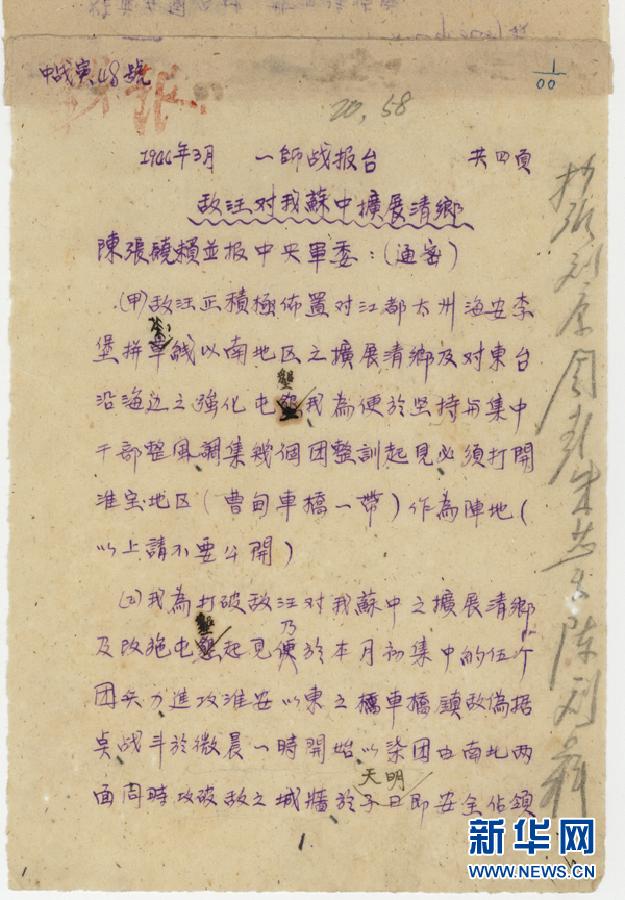 中战寅48號
1
00
20,58
1944年3月 一師战报台 共四頁
敌汪对我蘇中擴展清鄉
陳張饒賴並报中央軍委：(通密)
(甲)敌汪正積極佈置对江都太州海安李
堡拼 線以南地区之擴展清鄉及对東台
沿海边之強化屯墾我為便於坚持与集中
干部整風調集幾個团整訓起見必須打開
淮宝地区(曹甸車橋一帶)作為陣地(
以上請不要公開)
(乙)我為打破敌汪对我蘇中之擴展清鄉
及改施屯墾起見乃便於本月初集中的伍个
团兵力進攻淮安以東之橋車橋鎮敌偽据
点战斗於微晨一時開始以柒团由南北两
面同時攻破敌之城牆於天明即安全佔領
1.
新华网
WWW.NEWS.CN